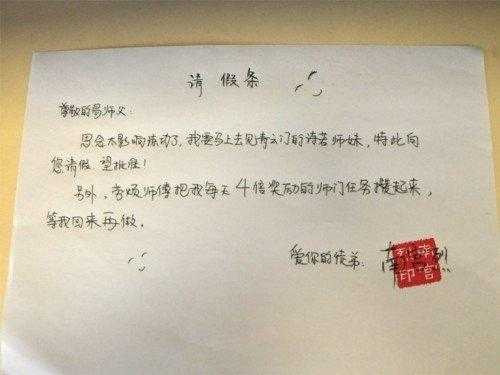 请假条
尊敬的易师父:
思念太影响练功了,我要马上去见青云门的诗若师妹,特此向
您请假,望批准!
另外,考烦师傅把我每天4倍奖励的师门任务攒起来,
等我回来再做。
爱你的徒弟:南宫烈
南宫
烈印